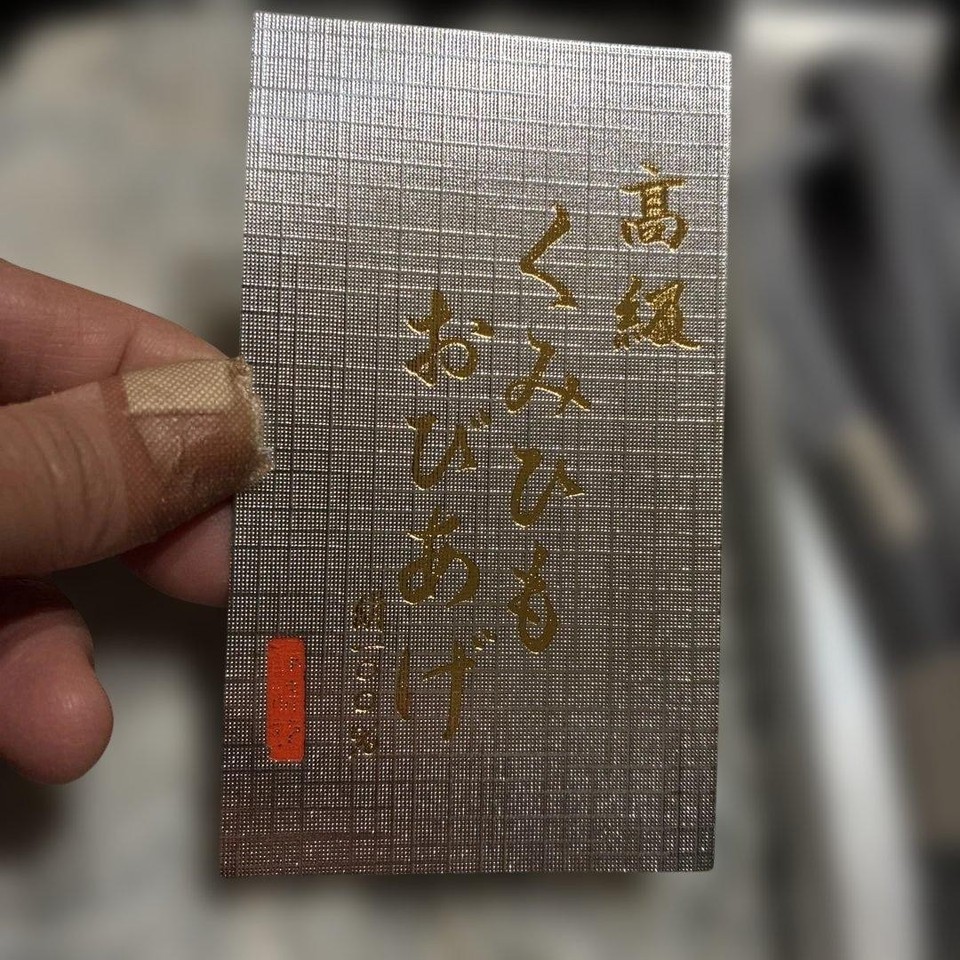 高級
くみひも
おびあげ